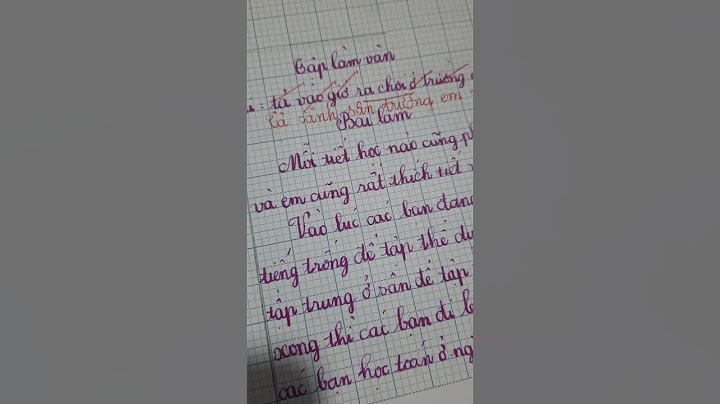 Tập làm văn
: tả vào giờ ra chơi ở trường
Tả cảnh sân trường em
Bài làm
Mỗi tiết học nào cũng
và em cũng rất thích tiết
Vào lúc các bạn đang
tiếng trống để tập thể
tập trung ở sân để tập
xong thì các bạn đi
các bạn học toán ở